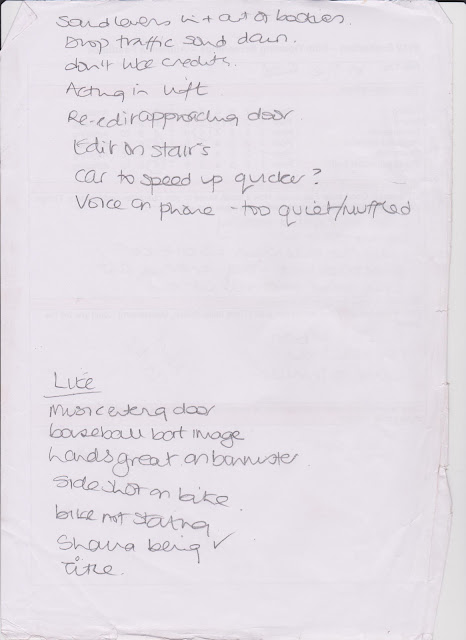 Sound levers in + out of
Drop traffic sound down.
don't like credits.
Acting in lift
Re-edit approaching door
Edit on stairs
car to speed up quicker?
Voice on phone - too quiet/muffled
Like
Music entering door
baseball bat image
hands great on bannister
side shot on bike
bike not starting
being ✓
Title.